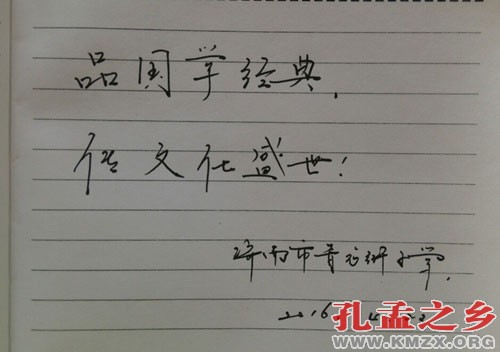 品国学经典,
传文化盛世!
济南市青龙街小学.
2016
孔孟之乡
WWW.KMZX.ORG